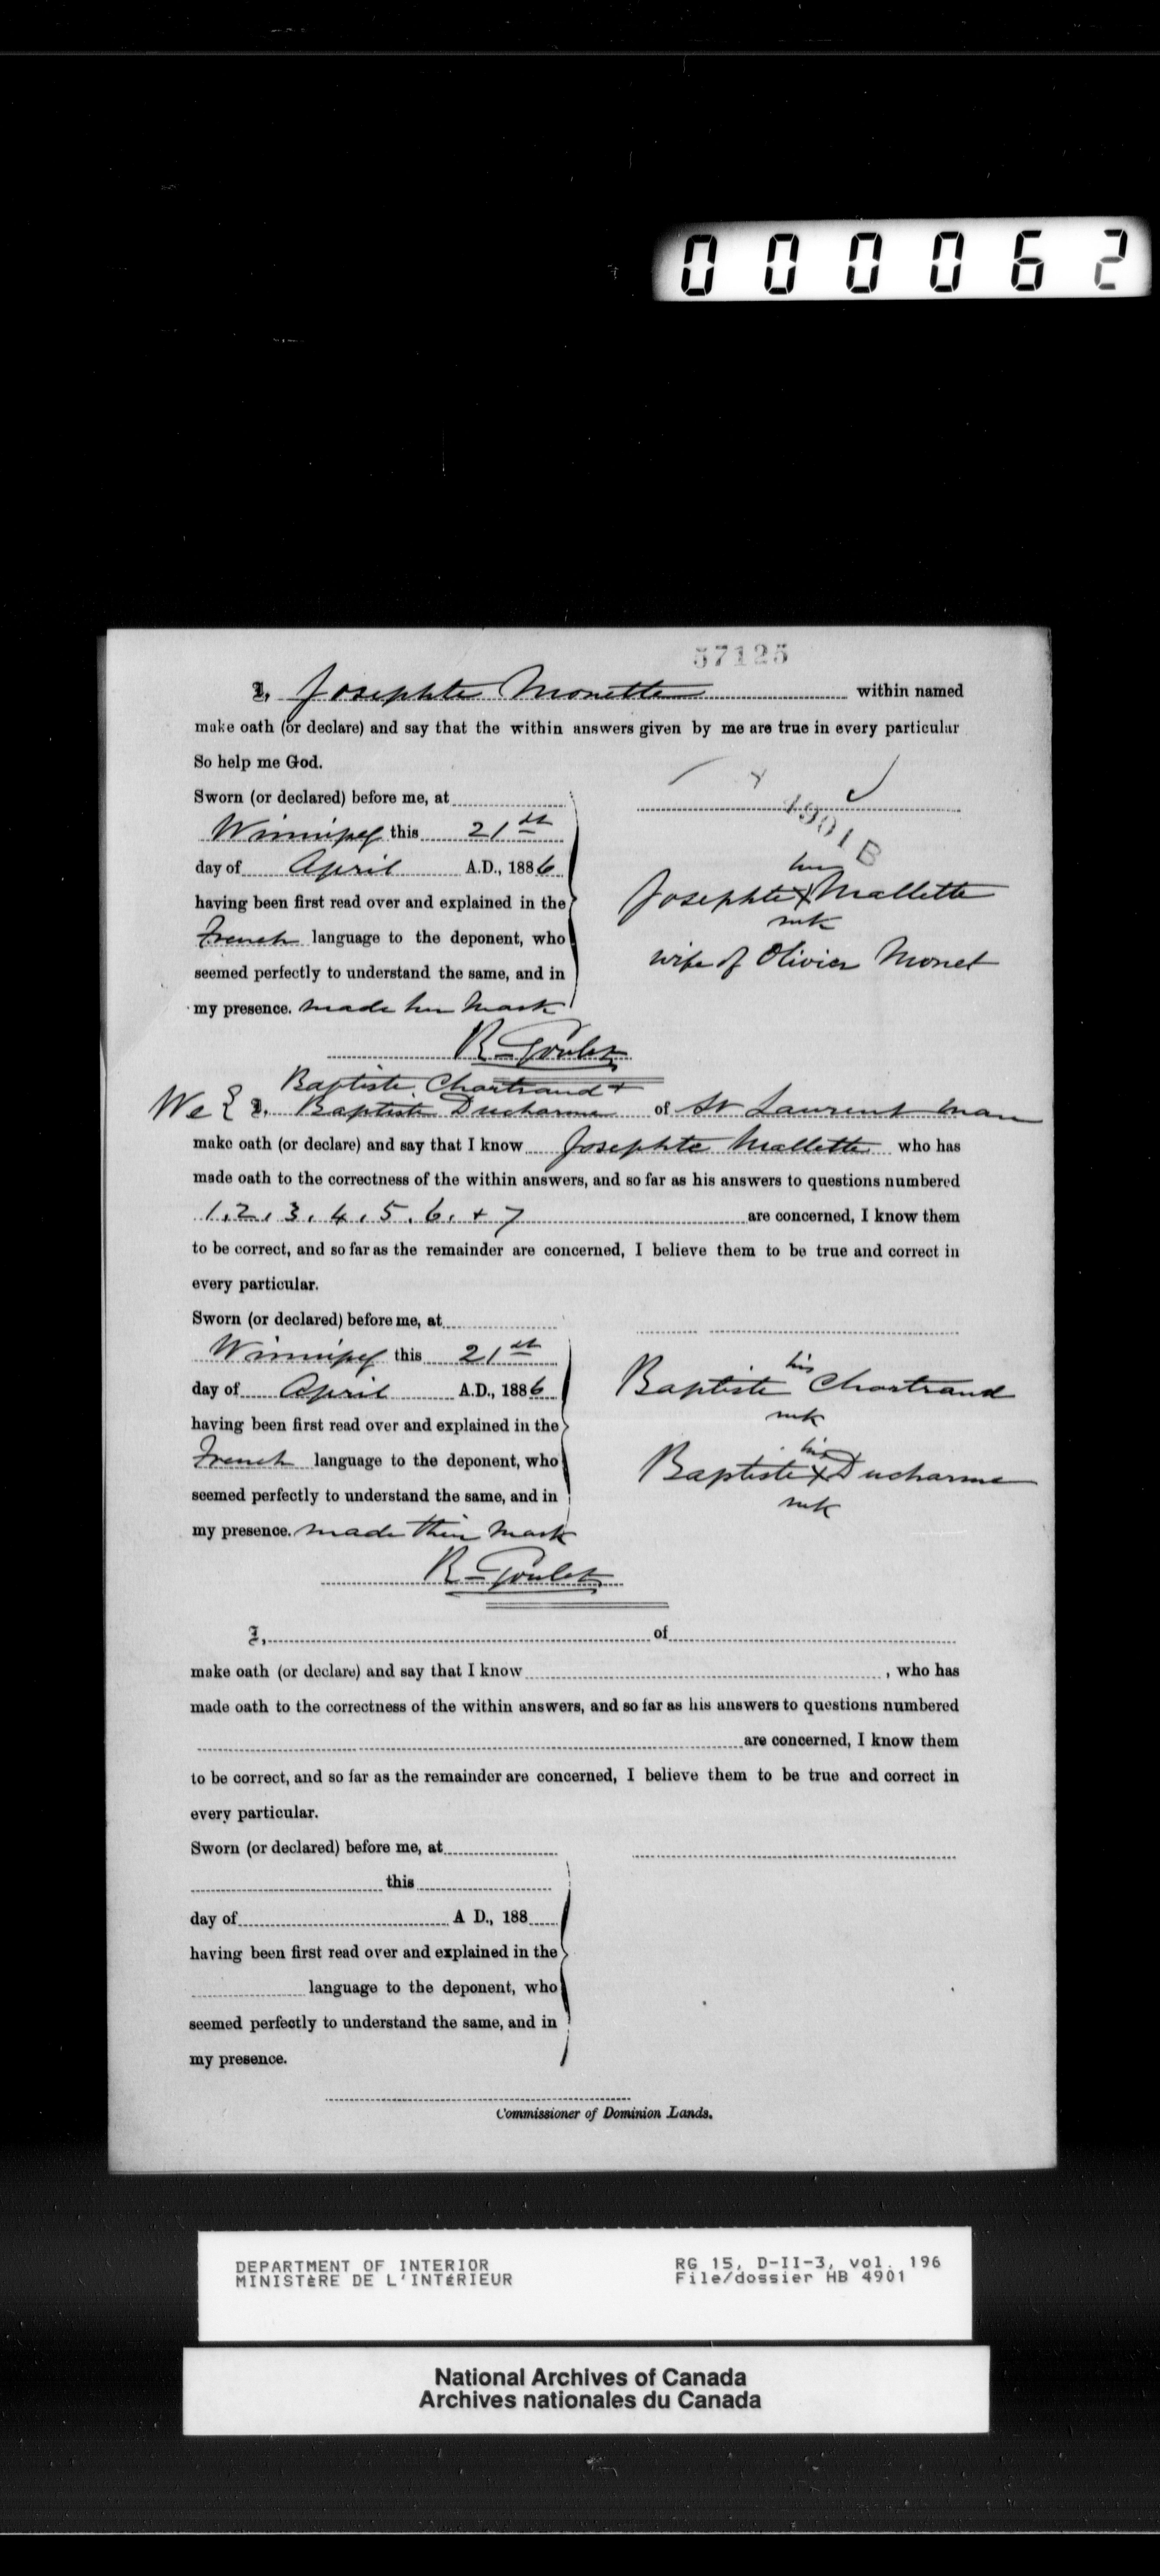 000062
57125
I, Josephte Monette within named
make oath (or declare) and say that the within answers given by me are true in every particular
So help me God.
Sworn (or declared) before me, at
Winnipeg this 21st
4901 B
day of April A.D., 1886
her
having been first read over and explained in the
Josephte X Mallette
mk
French language to the deponent, who
wife of Olivier Monet
seemed perfectly to understand the same, and in
my presence. made her mark
R Goulet
Baptiste Chartrand +
We { I. Baptiste Ducharme of St Laurent Man
make oath (or declare) and say that I know Josephte Mallette who has
made oath to the correctness of the within answers, and so far as his answers to questions numbered
1, 2, 3, 4, 5, 6, + 7 are concerned, I know them
to be correct, and so far as the remainder are concerned, I believe them to be true and correct in
every particular.
Sworn (or declared) before me, at
Winnipeg this 21st
his
day of April A.D., 1886
Baptiste Chartrand
mk
having been first read over and explained in the
his
French language to the deponent, who
Baptiste X Ducharme
mk
seemed perfectly to understand the same, and in
my presence. made their mark
R Goulet
I, of
make oath (or declare) and say that I know , who has
made oath to the correctness of the within answers, and so far as his answers to questions numbered
are concerned, I know them
to be correct, and so far as the remainder are concerned, I believe them to be true and correct in
every particular.
Sworn (or declared) before me, at
this
day of A D., 188
having been first read over and explained in the
language to the deponent, who
seemed perfectly to understand the same, and in
my presence.
Commissioner of Dominion Lands.
DEPARTMENT OF INTERIOR
MINISTÈRE DE L'INTÉRIEUR
RG 15, D-II-3, vol. 196
File/dossier HB 4901
National Archives of Canada
Archives nationales du Canada